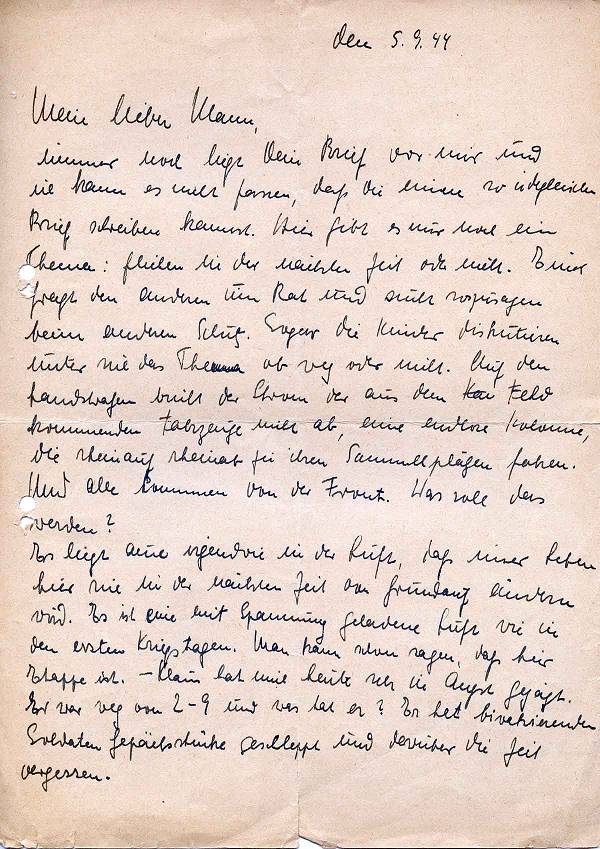 den 5.9.44
Mein lieber Mann,
immer noch liegt Dein Brief vor mir und
ich kann es nicht fassen, daß Du einen so idyllischen
Brief schreiben kannst. Hier gibt es nur noch ein
Thema: fliehen in der nächsten Zeit oder nicht. Einer
fragt den anderen um Rat und sucht sozusagen
beim anderen Schutz. Sogar die Kinder diskutieren
unter sich das Thema ob weg oder nicht. Auf den
Landstrassen reißt der Strom der aus dem Feld
kommenden Fahrzeuge nicht ab, eine endlose Kolonne,
die rheinauf rheinab zu ihren Sammelplätzen fahren.
Und alle kommen von der Front. Was soll das
werden?
Es liegt irgendwie in der Luft, daß unser Leben
hier sich in der nächsten Zeit von Grund auf ändern
wird. Es ist eine mit Spannung geladene Luft wie in
den ersten Kriegstagen. Man kann schon sagen, daß hier
Etappe ist. – Klaus hat mich heute sehr in Angst gejagt.
Er war weg von 2–9 und was tat er? Er hat biwakierenden
Soldaten Gepäckstücke geschleppt und darüber die Zeit
vergessen.